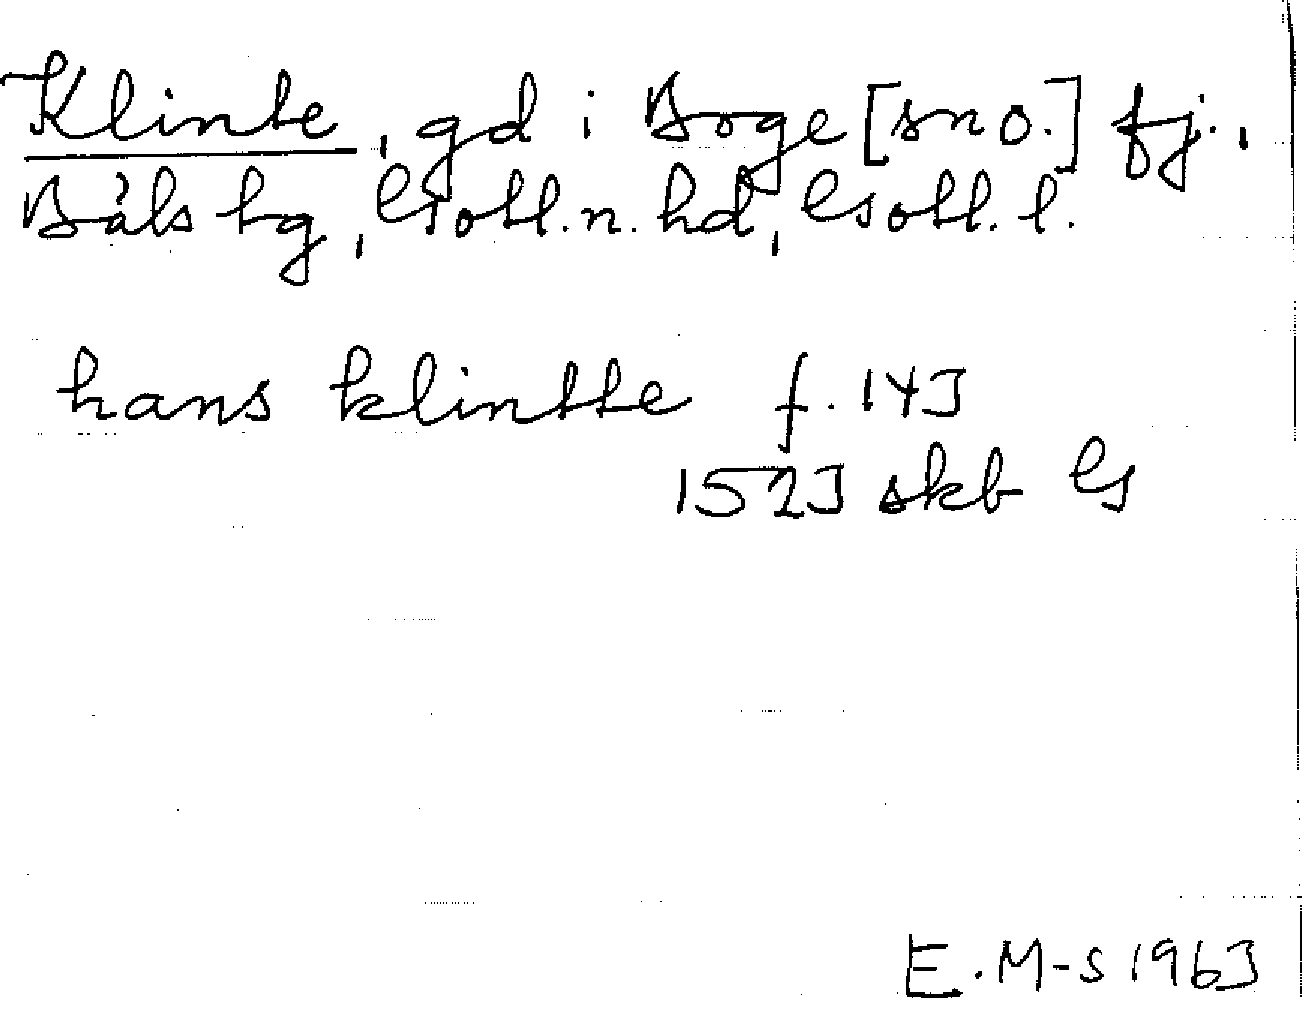 Klinte, gd i Boge [sn o.] fj.,
Bäls tg, Gotl.n. hd, Gotl. l.
hans klintte f. 143
1523 skb G
E. M-S 1963